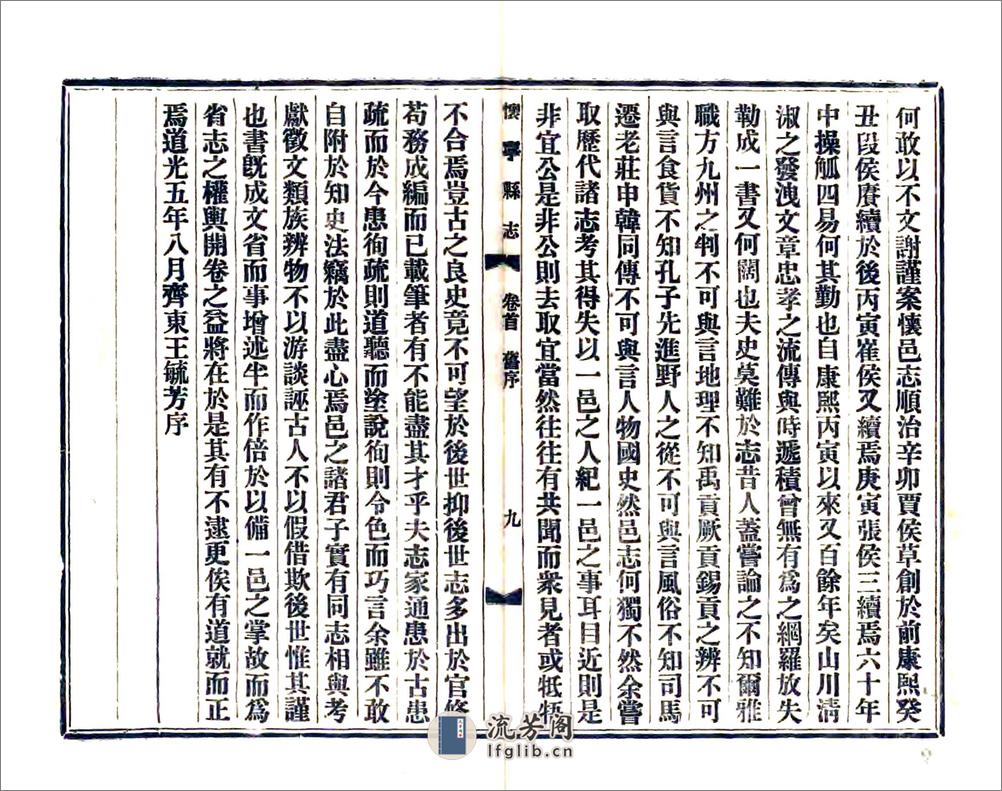 何敢以不文謝謹案懷邑志順治辛卯賈侯草創於前康熙癸
丑段侯賡續於後丙寅崔侯又續焉庚寅張侯三續焉六十年
中操觚四易何其勤也自康熙丙寅以來又百餘年矣山川清
淑之發洩文章忠孝之流傳與時遞積曾無有為之網羅放失
勒成一書又何闕也夫史莫難於志昔人蓋嘗論之不知爾雅
職方九州之判不可與言地理不知禹貢厥貢錫貢之辨不可
與言食貨不知孔子先進野人之從不可與言風俗不知司馬
遷老莊申韓同傳不可與言人物國史然邑志何獨不然余嘗
取歷代諸志考其得失以一邑之人紀一邑之事耳目近則是
非宜公是非公則去取宜當然往往有共聞而衆見者或牴牾
懷寧縣志 卷首 舊序 九
不合焉豈古之良史竟不可望於後世抑後世志多出於官修
苟務成編而已載筆者有不能盡其才乎夫志家通患於古患
疏而於今患徇疏則道聽而塗說徇則令色而巧言余雖不敢
自附於知史法竊於此盡心焉邑之諸君子實有同志相與考
獻徵文類族辨物不以游談誣古人不以假借欺後世惟其謹
也書旣成文省而事增述半而作倍於以備一邑之掌故而為
省志之權輿開卷之益將在於是其有不逮更俟有道就而正
焉道光五年八月齊東王毓芳序
流芳閣
lfglib.cn